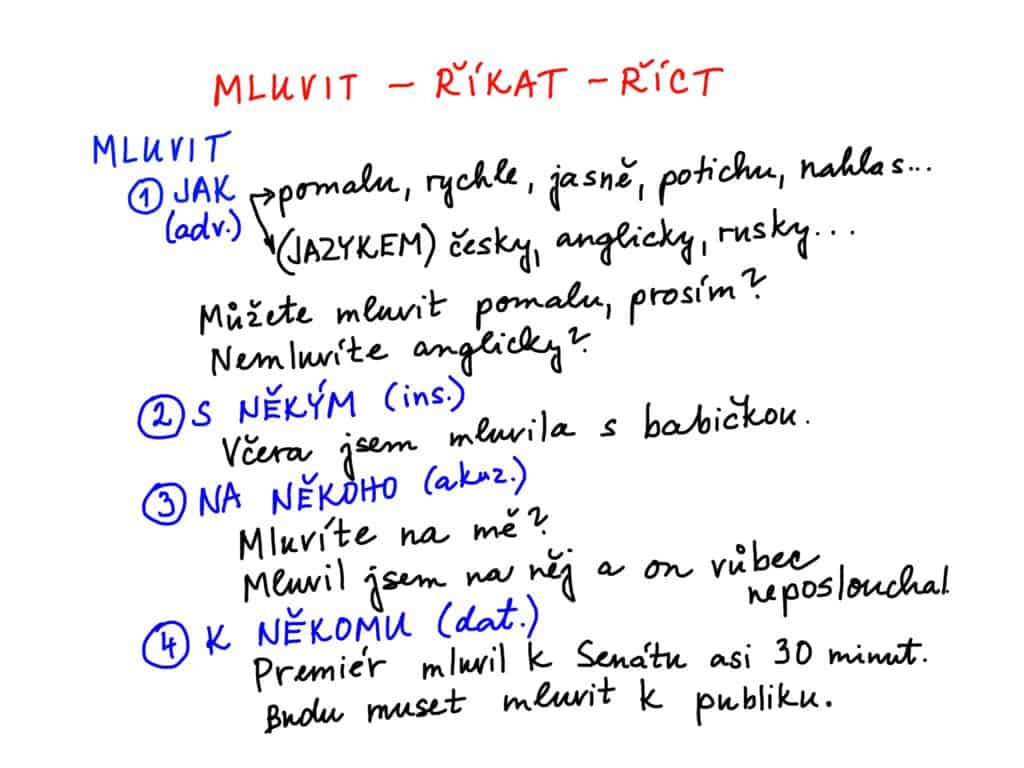 MLUVIT – ŘÍKAT – ŘÍCT
MLUVIT
① JAK → pomalu, rychle, jasně, potichu, nahlas...
(adv.) (JAZYKEM) česky, anglicky, rusky...
Můžete mluvit pomalu, prosím?
Nemluvíte anglicky?
② S NĚKÝM (ins.)
Včera jsem mluvila s babičkou.
③ NA NĚKOHO (akuz.)
Mluvíte na mě?
Mluvil jsem na něj a on vůbec
neposlouchal
④ K NĚKOMU (dat.)
Premiér mluvil k Senátu asi 30 minut.
Budu muset mluvit k publiku.